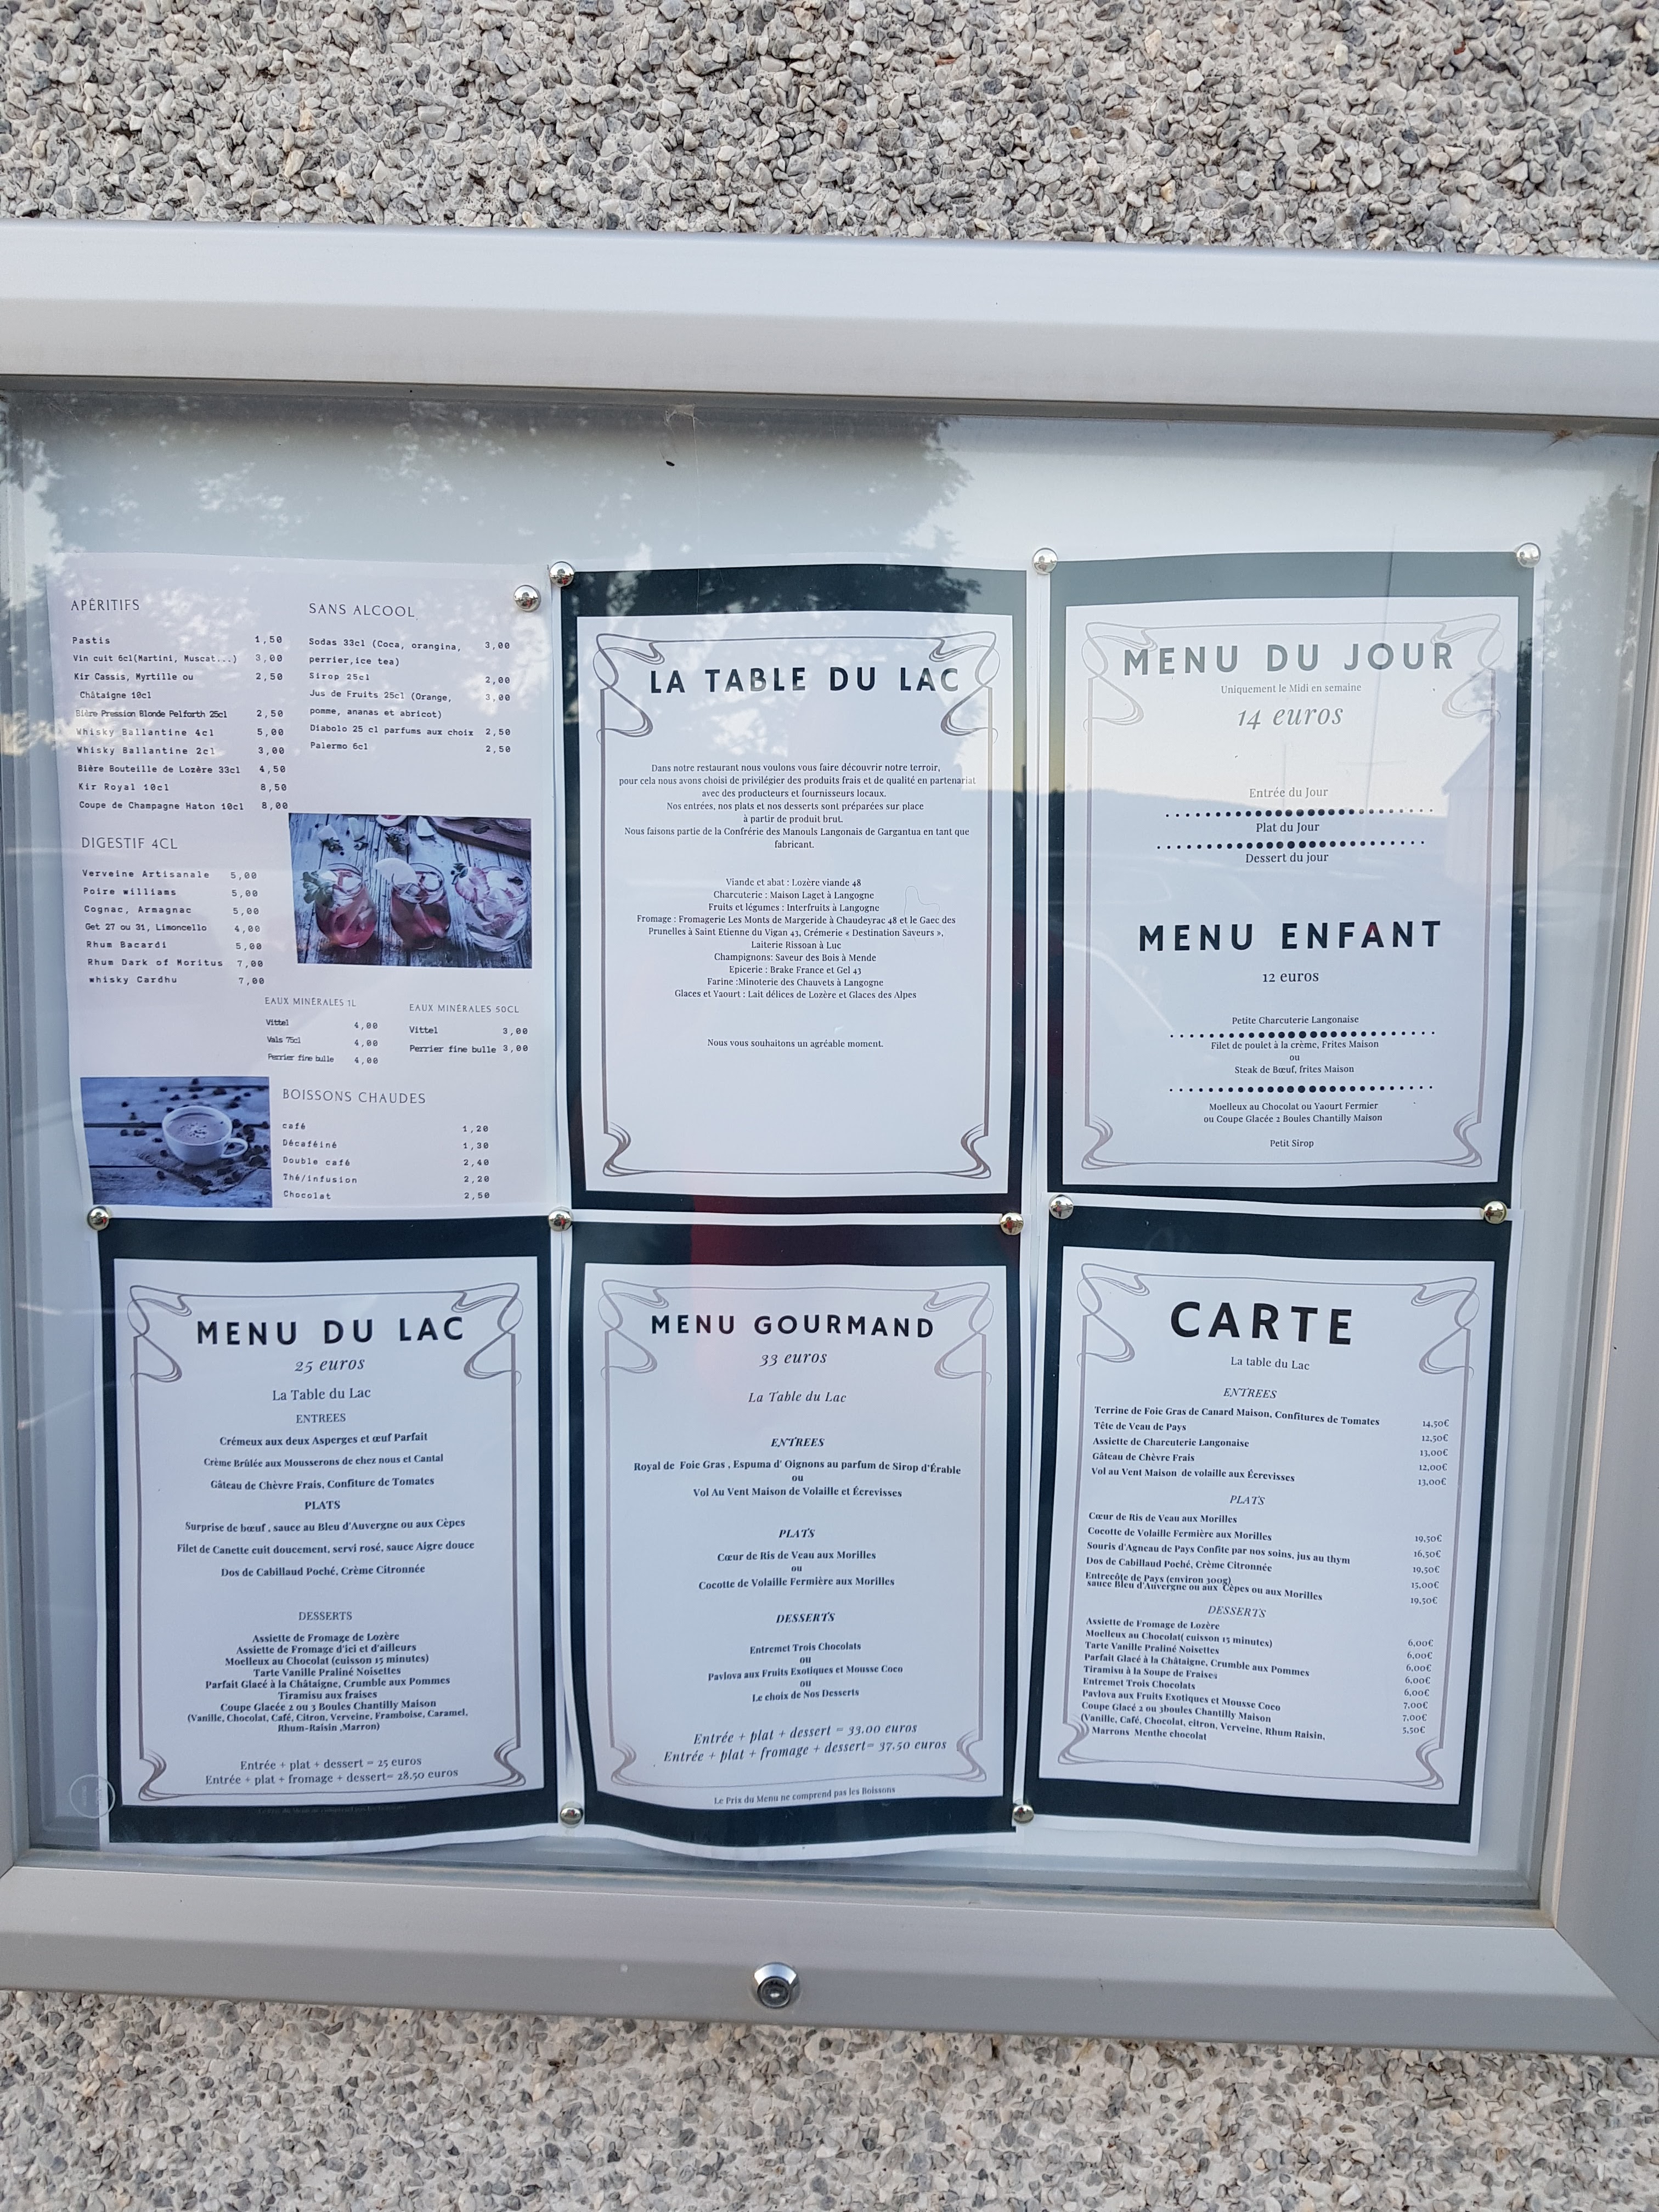 APÉRITIFS
Pastis 1,50
Vin cuit 6cl(Martini, Muscat...) 3,00
Kir Cassis, Myrtille ou 2,50
Châtaigne 10cl
Bière Pression Blonde Pelforth 25cl 2,50
Whisky Ballantine 4cl 5,00
Whisky Ballantine 2cl 3,00
Bière Bouteille de Lozère 33cl 4,50
Kir Royal 10cl 8,50
Coupe de Champagne Haton 10cl 8,00
SANS ALCOOL
Sodas 33cl (Coca, orangina, 3,00
perrier,ice tea)
Sirop 25cl 2,00
Jus de Fruits 25cl (Orange, 3,00
pomme, ananas et abricot)
Diabolo 25 cl parfums aux choix 2,50
Palermo 6cl 2,50
DIGESTIF 4CL
Verveine Artisanale 5,00
Poire williams 5,00
Cognac, Armagnac 5,00
Get 27 ou 31, Limoncello 4,00
Rhum Bacardi 5,00
Rhum Dark of Moritus 7,00
whisky Cardhu 7,00
EAUX MINÉRALES 1L
Vittel 4,00
Vals 75cl 4,00
Perrier fine bulle 4,00
EAUX MINÉRALES 50CL
Vittel 3,00
Perrier fine bulle 3,00
BOISSONS CHAUDES
café 1,20
Décaféiné 1,30
Double café 2,40
Thé/infusion 2,20
Chocolat 2,50
LA TABLE DU LAC
Dans notre restaurant nous voulons vous faire découvrir notre terroir,
pour cela nous avons choisi de privilégier des produits frais et de qualité en partenariat
avec des producteurs et fournisseurs locaux.
Nos entrées, nos plats et nos desserts sont préparées sur place
à partir de produit brut.
Nous faisons partie de la Confrérie des Manouls Langonais de Gargantua en tant que
fabricant.
Viande et abat : Lozère viande 48
Charcuterie : Maison Laget à Langogne
Fruits et légumes : Interfruits à Langogne
Fromage : Fromagerie Les Monts de Margeride à Chaudeyrac 48 et le Gaec des
Prunelles à Saint Etienne du Vigan 43, Crémerie « Destination Saveurs »,
Laiterie Rissoan à Luc
Champignons: Saveur des Bois à Mende
Epicerie : Brake France et Gel 43
Farine :Minoterie des Chauvets à Langogne
Glaces et Yaourt : Lait délices de Lozère et Glaces des Alpes
Nous vous souhaitons un agréable moment.
MENU DU JOUR
Uniquement le Midi en semaine
14 euros
Entrée du Jour
Plat du Jour
Dessert du jour
MENU ENFANT
12 euros
Petite Charcuterie Langonaise
Filet de poulet à la crème, Frites Maison
ou
Steak de Bœuf, frites Maison
Moelleux au Chocolat ou Yaourt Fermier
ou Coupe Glacée 2 Boules Chantilly Maison
Petit Sirop
MENU DU LAC
25 euros
La Table du Lac
ENTREES
Crémeux aux deux Asperges et œuf Parfait
Crème Brûlée aux Mousserons de chez nous et Cantal
Gâteau de Chèvre Frais, Confiture de Tomates
PLATS
Surprise de bœuf , sauce au Bleu d'Auvergne ou aux Cèpes
Filet de Canette cuit doucement, servi rosé, sauce Aigre douce
Dos de Cabillaud Poché, Crème Citronnée
DESSERTS
Assiette de Fromage de Lozère
Assiette de Fromage d'ici et d'ailleurs
Moelleux au Chocolat (cuisson 15 minutes)
Tarte Vanille Praliné Noisettes
Parfait Glacé à la Châtaigne, Crumble aux Pommes
Tiramisu aux fraises
Coupe Glacée 2 ou 3 Boules Chantilly Maison
(Vanille, Chocolat, Café, Citron, Verveine, Framboise, Caramel,
Rhum-Raisin ,Marron)
Entrée + plat + dessert = 25 euros
Entrée + plat + fromage + dessert= 28.50 euros
MENU GOURMAND
33 euros
La Table du Lac
ENTREES
Royal de Foie Gras , Espuma d' Oignons au parfum de Sirop d'Érable
ou
Vol Au Vent Maison de Volaille et Écrevisses
PLATS
Cœur de Ris de Veau aux Morilles
ou
Cocotte de Volaille Fermière aux Morilles
DESSERTS
Entremet Trois Chocolats
ou
Pavlova aux Fruits Exotiques et Mousse Coco
ou
Le choix de Nos Desserts
Entrée + plat + dessert = 33.00 euros
Entrée + plat + fromage + dessert= 37.50 euros
Le Prix du Menu ne comprend pas les Boissons
CARTE
La table du Lac
ENTREES
Terrine de Foie Gras de Canard Maison, Confitures de Tomates 14,50€
Tête de Veau de Pays 12,50€
Assiette de Charcuterie Langonaise 13,00€
Gâteau de Chèvre Frais 12,00€
Vol au Vent Maison de volaille aux Écrevisses 13,00€
PLATS
Cœur de Ris de Veau aux Morilles 19,50€
Cocotte de Volaille Fermière aux Morilles 16,50€
Souris d'Agneau de Pays Confite par nos soins, jus au thym 19,50€
Dos de Cabillaud Poché, Crème Citronnée 15,00€
Entrecôte de Pays (environ 300g)
sauce Bleu d'Auvergne ou aux Cèpes ou aux Morilles 19,50€
DESSERTS
Assiette de Fromage de Lozère 6,00€
Moelleux au Chocolat( cuisson 15 minutes) 6,00€
Tarte Vanille Praliné Noisettes 6,00€
Parfait Glacé à la Châtaigne, Crumble aux Pommes 6,00€
Tiramisu à la Soupe de Fraises 6,00€
Entremet Trois Chocolats 7,00€
Pavlova aux Fruits Exotiques et Mousse Coco 7,00€
Coupe Glacé 2 ou 3boules Chantilly Maison 5,50€
(Vanille, Café, Chocolat, citron, Verveine, Rhum Raisin,
Marrons Menthe chocolat